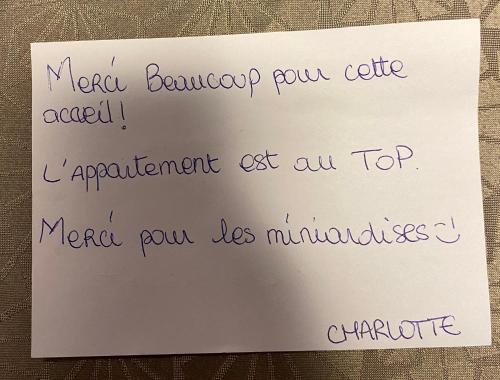 Merci Beaucoup pour cette
acceil!
L'Appartement est au TOP.
Merci pour les miniardises =)
CHARLOTTE